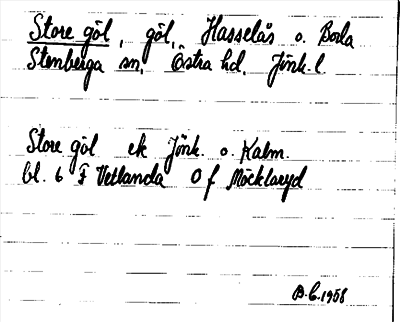 Store göl, göl, Hasselås o. Boda
Stenberga sn, Östra hd, Jönk. l
Store göl ek Jönk. o. Kalm.
bl. 6 F Vetlanda Of Möcklaryd
B.C. 1958